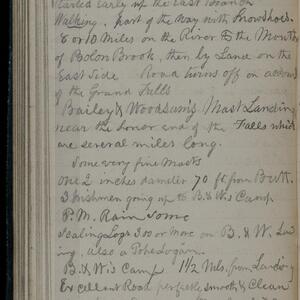 Started Early up the East Branch
Walking, part of the way with Snowshoes
8 or 10 Miles on the River to the Mouth
of Bolon Brook, then by Land on the
East Side Road turns off on account
of the Grand Falls
Bailey & Woodsum's Mast Landing
near the end of the Falls which
are several miles long.
Some very fine Masts
one 2 inches dameter 70 ft from Butt.
3 Irishmen going up to B. & W's Camp
P.M. Rain Some
Sealing Logs 300 or More on B. & W. Lan
ing, also a Pokelogan.
B. & W's Camp 1 1/2 Mls. from Landing
Excellent Road perfectly smooth & Clean